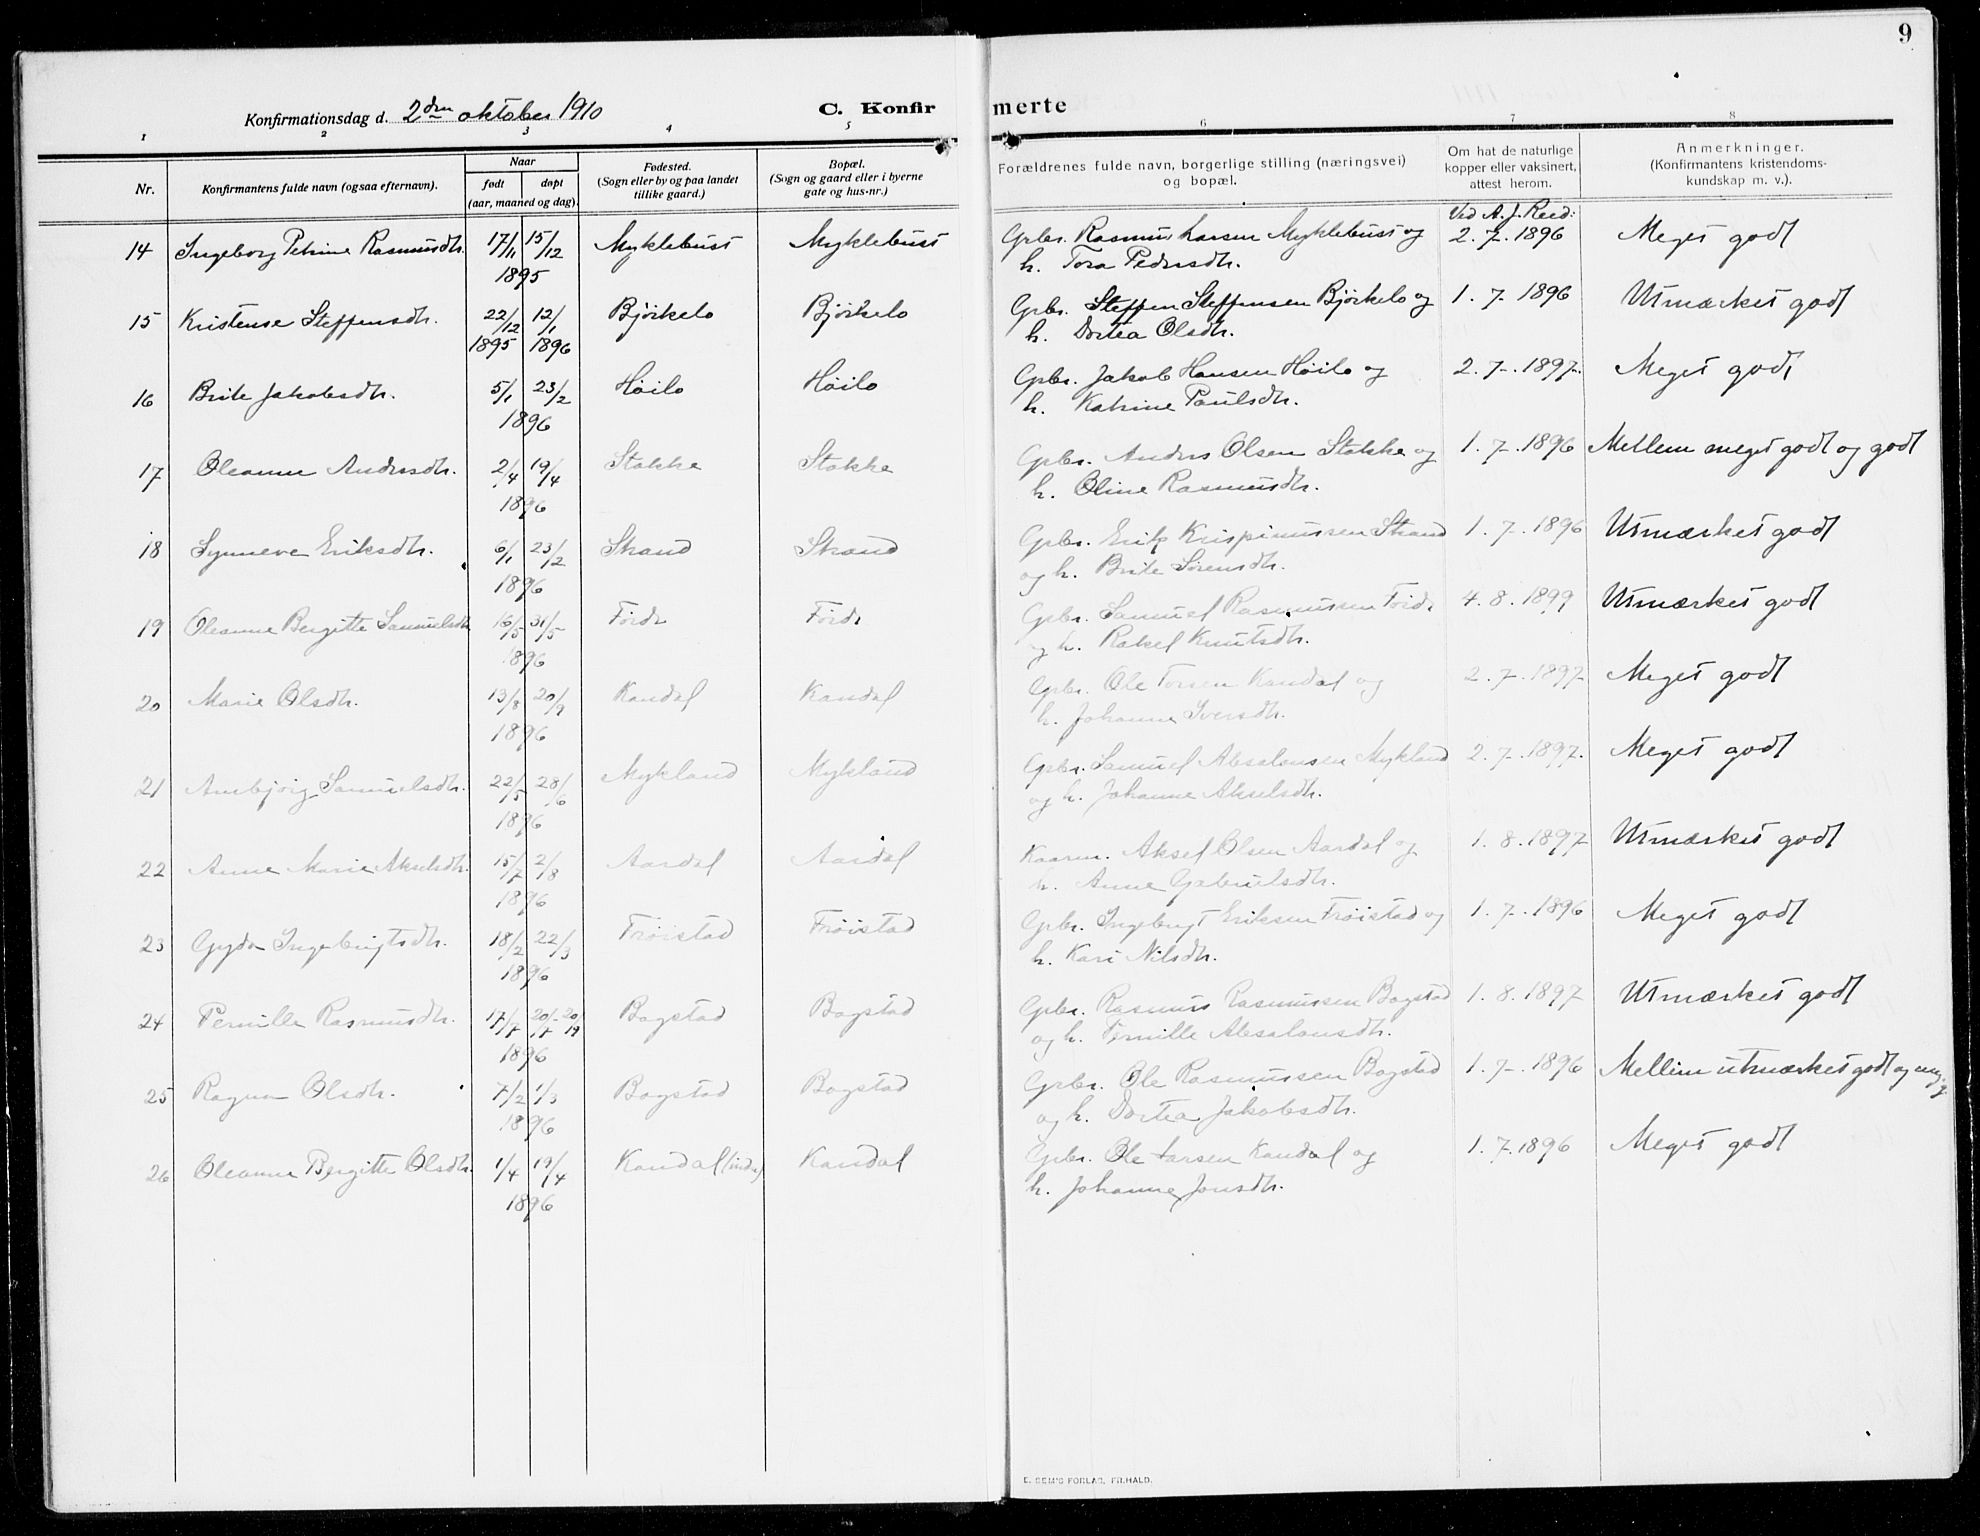 9
Konfirmationsdag d. 2den oktober 1910 C. Konfirmerte
1 2 3 4 5 6 7 8
Nr. Konfirmantens fulde navn (ogsaa efternavn). Naar født døpt (aar, maaned og dag). Fødested. (Sogn eller by og paa landet tillike gaard.) Bopæl. (Sogn og gaard eller i byerne gate og hus-nr.) Forældrenes fulde navn, borgerlige stilling (næringsvei) og bopæl. Om hat de naturlige kopper eller vaksinert, attest herom. Anmerkninger. (Konfirmantens kristendoms-kundskap m. v.).
Ved A. J. Reed:
14 Ingeborg Petrine Rasmusdtr. 17/11 15/12 Myklebust Myklebust Grbr. Rasmus Larsen Myklebust og 2. 7. 1896 Meget godt
1895 h. Tora Pedersdtr.
15 Kristense Steffensdtr. 22/12 12/1 Bjørkelo Bjørkelo Grbr. Steffen Steffensen Bjørkelo og 1. 7. 1896 Utmærket godt
1895 1896 h. Dortea Olsdtr.
16 Brite Jakobsdtr. 5/1 23/2 Høilo Høilo Grbr. Jakob Hansen Høilo og 2. 7. 1897. Meget godt
1896 h. Katrine Paulsdtr.
17 Oleanne Andersdtr. 2/4 19/4 Stokke Stokke Grbr. Anders Olsen Stokke og 1. 7. 1896 Mellem meget godt og godt
1896 h. Oline Rasmusdtr.
18 Synneve Eriksdtr. 6/1 23/2 Strand Strand Grbr. Erik Krispinussen Strand 1. 7. 1896 Utmærket godt
1896 og h. Brite Sørensdtr.
19 Oleanne Bergitte Samuelsdtr. 16/5 31/5 Førde Førde Grbr. Samuel Rasmussen Førde 4. 8. 1899 Utmærket godt
1896 og h. Rakel Knutsdtr.
20 Marie Olsdtr. 13/8 20/9 Kandal Kandal Grbr. Ole Torsen Kandal og 2. 7. 1897 Meget godt
1896 h. Johanne Iversdtr.
21 Annbjørg Samuelsdtr. 22/5 28/6 Mykland Mykland Grbr. Samuel Absalonsen Mykland 2. 7. 1897. Meget godt
1896 og h. Johanne Akselsdtr.
22 Anne Marie Akselsdtr. 15/7 2/8 Aardal Aardal Kaarm. Aksel Olsen Aardal og 1. 8. 1897 Utmærket godt
1896 h. Anne Gabrielsdtr.
23 Gyda Ingebrigtsdtr. 18/2 22/3 Frøistad Frøistad Grbr. Ingebrigt Eriksen Frøistad og 1. 7. 1896 Meget godt
1896 h. Kari Nilsdtr.
24 Pernille Rasmusdtr. 17/7 Bogstad Bogstad Grbr. Rasmus Rasmussen Bogstad 1. 8. 1897 Utmærket godt
1896 og h. Pernille Absalonsdtr.
25 Ragna Olsdtr. 7/2 1/3 Bogstad Bogstad Grbr. Ole Rasmussen Bogstad 1. 7. 1896 Mellem utmærket godt og
1896 og h. Dortea Jakobsdtr.
26 Oleanne Bergitte Olsdtr. 1/4 19/4 Kandal (indre) Kandal Grbr. Ole Larsen Kandal og 1. 7. 1896 Meget godt
1896 h. Johanne Jonsdtr.
E. SEM'S FORLAG, FR.HALD.